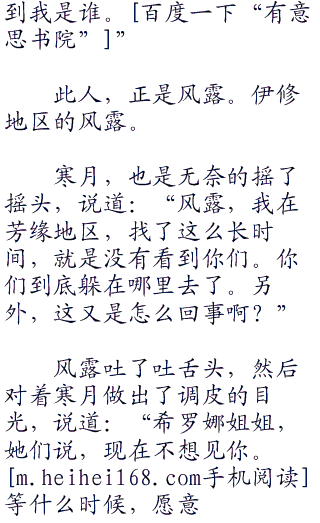 到我是谁。[百度一下“有意
思书院”]”
此人，正是风露。伊修
地区的风露。
寒月，也是无奈的摇了
摇头，说道：“风露，我在
芳缘地区，找了这么长时
间，就是没有看到你们。你
们到底躲在哪里去了。另
外，这又是怎么回事啊？”
风露吐了吐舌头，然后
对着寒月做出了调皮的目
光，说道：“希罗娜姐姐，
她们说，现在不想见你。
[m.heihei168.com手机阅读]
等什么时候，愿意